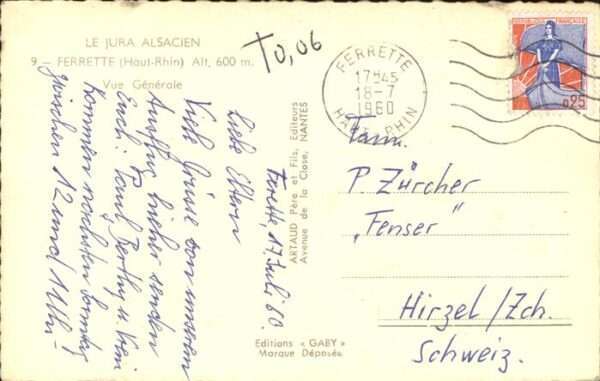 LE JURA ALSACIEN
9 — FERRETTE (Haut-Rhin) Alt. 600 m.
Vue Générale
T 0,06
FERRETTE
17H45
18-7
1960
HAUT-RHIN
REPUBLIQUE FRANÇAISE
0,25
Ferette, 17. Juli 60.
Liebe Eltern
Viele Grüsse von unserem
Ausflug hierher senden
Euch: Paul, Berthy u. 
Kommen nächsten Sonntag
zwischen 12 und 1 Uhr –
ARTAUD Père et Fils, Editeurs
Avenue de la Close, NANTES
Editions « GABY »
Marque Déposée
Fam.
P. Zürcher
„Fenser"
Hirzel/Zch.
Schweiz.